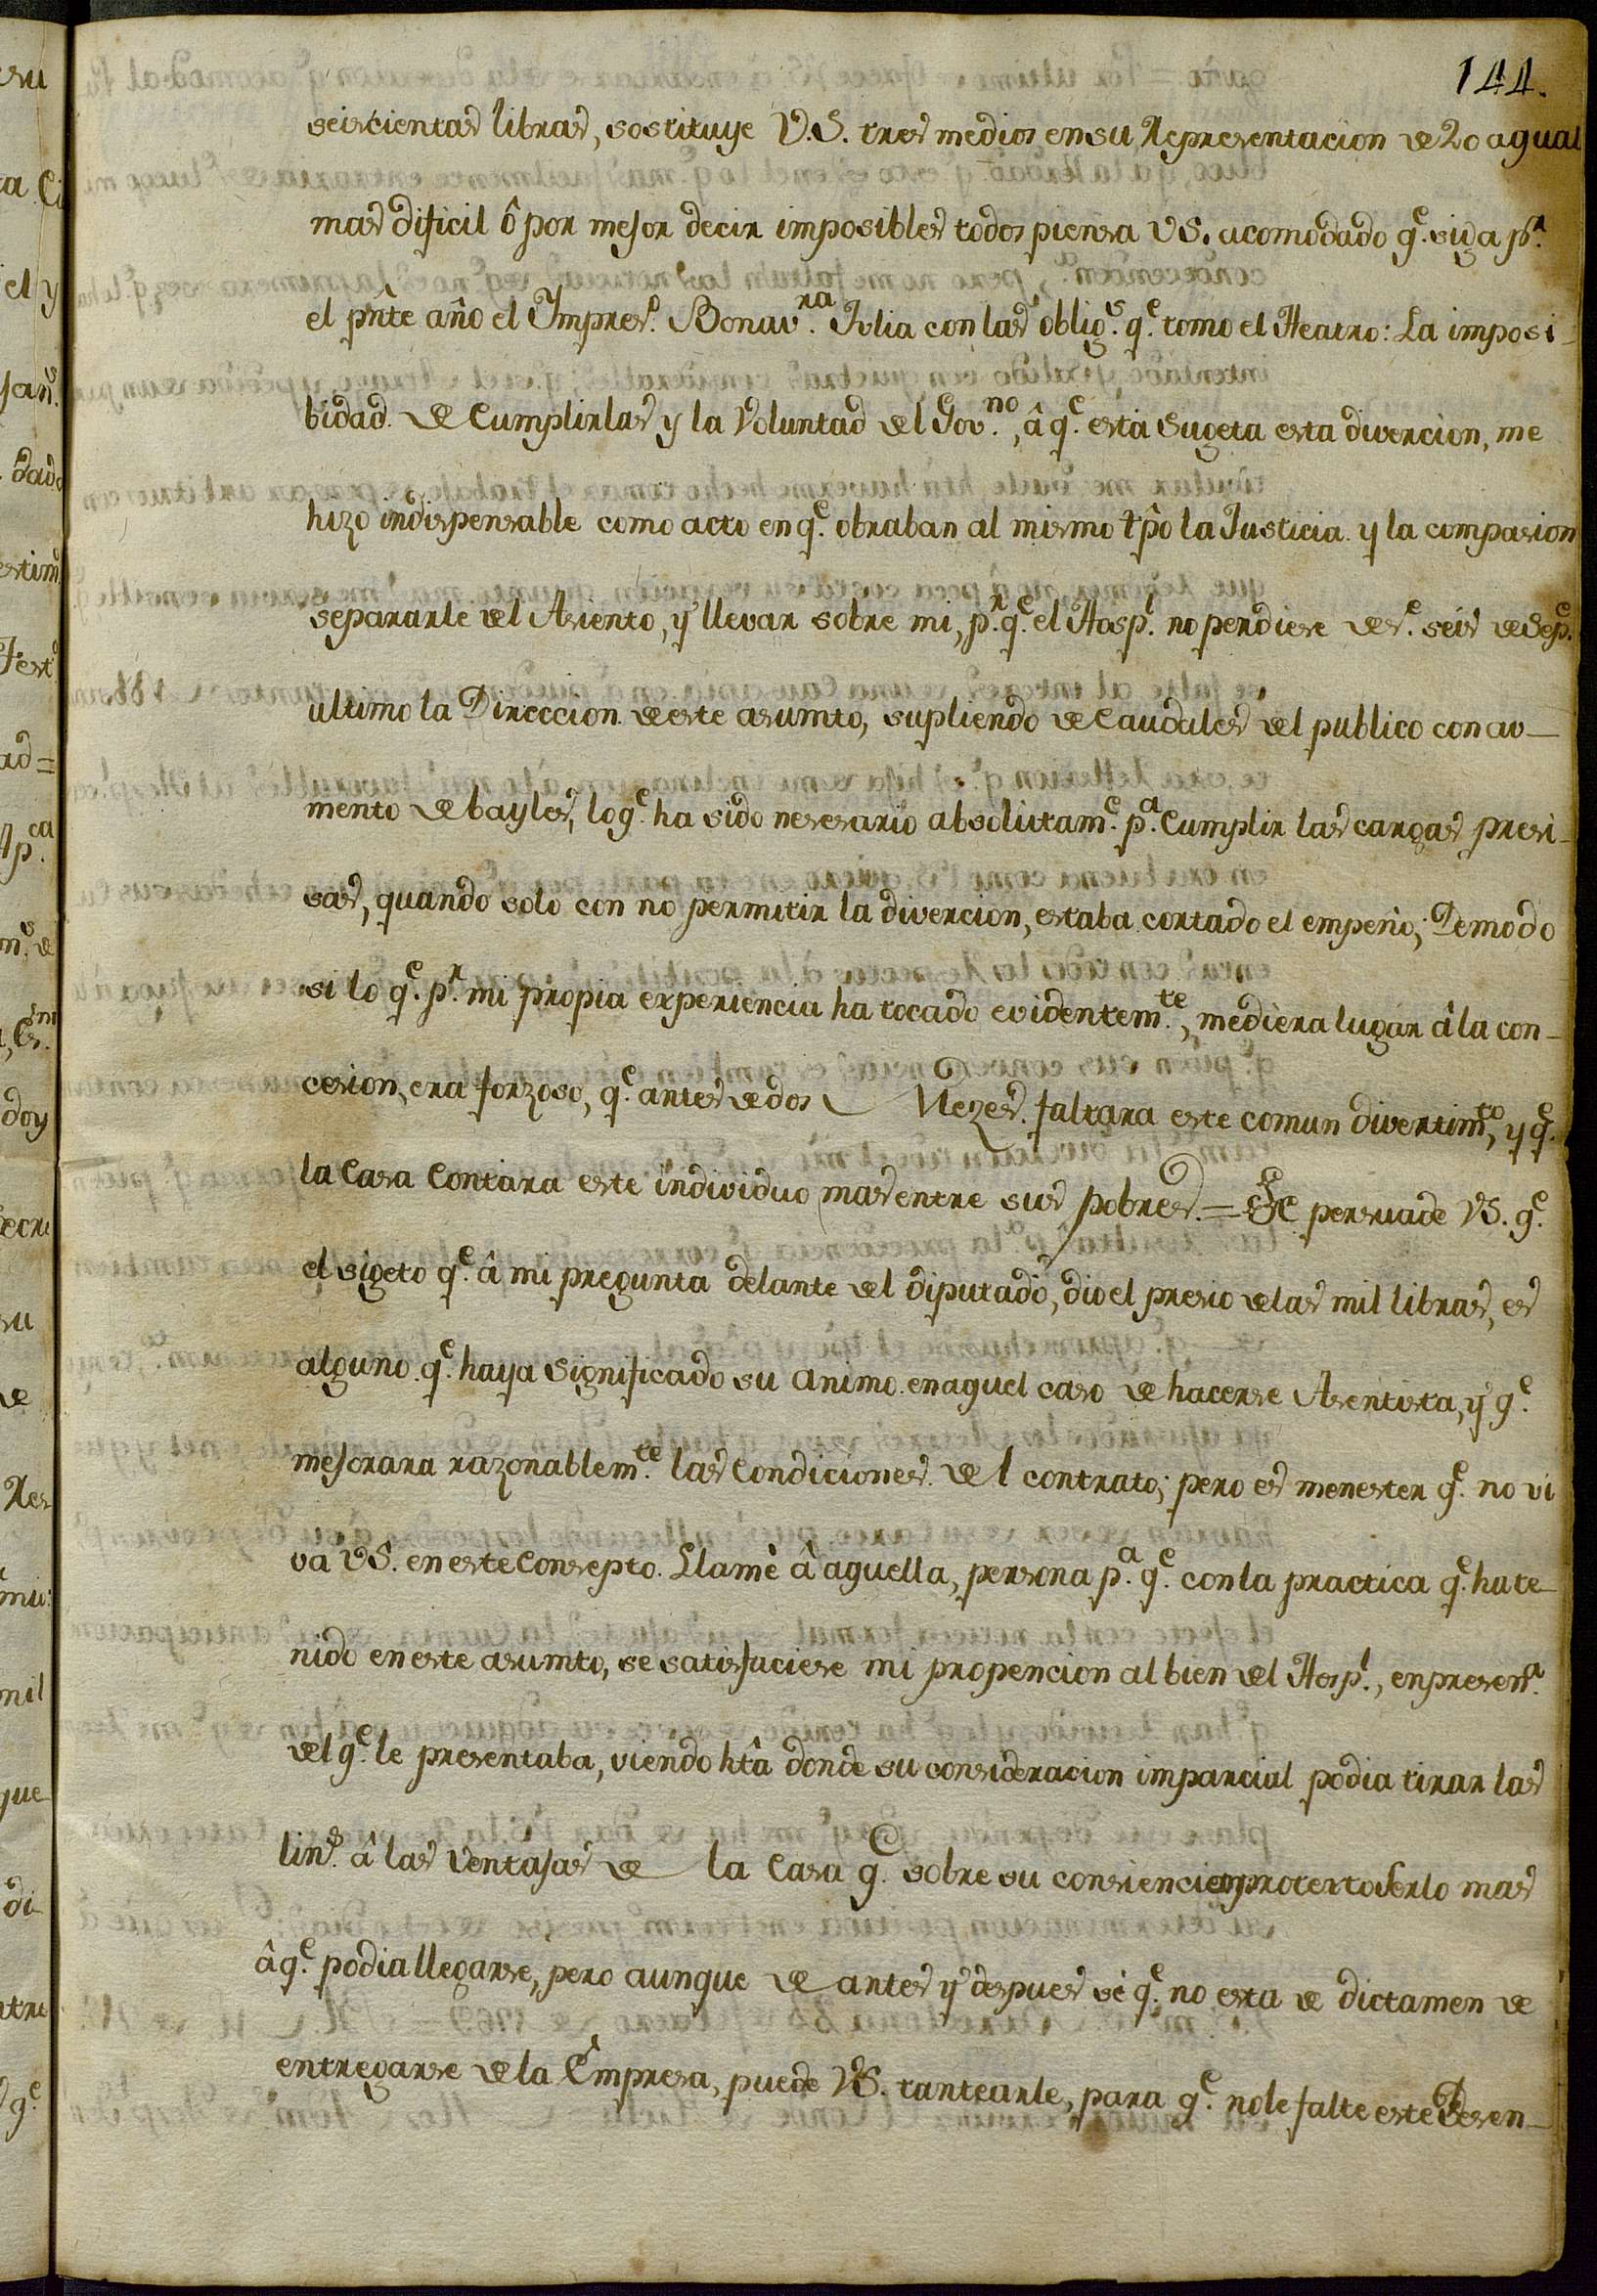 144.
seiscientas libras, sostituye V.S. tres medios en su Representacion de 20 a qual
mas dificil ô por mejor decir imposibles todos piensa VS. acomodado q.e siga p.a
el pñte año el Impres.o Bonav.ra Iulia con las oblig.s q.e tomo el Theatro: La imposi-
bidad de Cumplirlas y la Voluntad del Gov.no, â q.e esta sugeta esta divercion, me
hizo indispensable como acto en q.e obraban al mismo tpô la Justicia y la compasion
separarle del Asiento, y llevar sobre mi, p.r q.e el Hosp.l no perdiese des.e seis de Sep.e
ultimo la Direccion de este asumto, supliendo de Caudales del publico con au-
mento de bayles, lo q.e ha sido nesesario absolutam.e p.a Cumplir las cargas presi-
sas, quando solo con no permitir la divercion, estaba cortado el empeño; De modo
si lo q.e p.r mi propia experiencia ha tocado evidentem.te, mediera lugar â la con-
cesion, era forzoso, q.e antes de dos Mezes faltara este comun divertim.to, y q.e
la Casa Contara este individuo mas entre sus pobres. = Se persuade VS. q.e
el sigeto q.e â mi pregunta delante del diputado, dio el presio de las mil libras, es
alguno q.e haya significado su animo en aquel caso de hacerse Asentista, y q.e
mejorara razonablem.te las Condiciones del contrato; pero es menester q.e no vi
va VS. en este Consepto. Llamè â aquella, persona p.a q.e con la practica q.e ha te-
nido en este asumto, se satisfaciese mi propencion al bien del Hosp.l, en presen.a
del q.e le presentaba, viendo htâ donde su consideracion imparcial podia tirar las
lin.s â las Ventajas de la Casa q.e sobre su consiencia protexto serlo mas
â q.e podia llegarse, pero aunque de antes y despues sè q.e no esta de dictamen de
entregarse de la Empresa, puede VS. tantearle, para q.e no le falte este Desen-